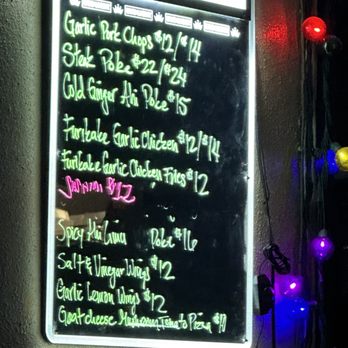 Garlic Pork Chops $12/$14
Steak Poke $22/$24
Cold Ginger Ahi Poke $15
Furikake Garlic Chicken $12/$14
Furikake Garlic Chicken Fries $12
$12
Spicy Ahi Poke $16
Salt & Vinegar Wings $12
Garlic Lemon Wings $12
Goat cheese Mushroom Tomato Pizza